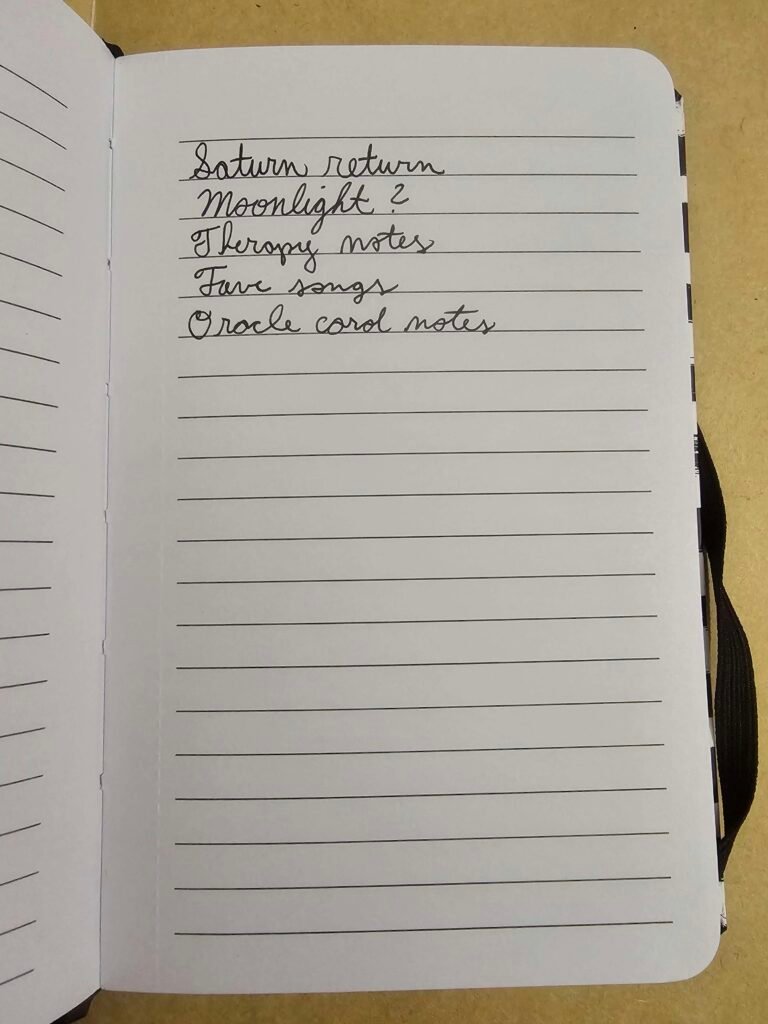 Saturn return
Moonlight ?
Therapy notes
Fave songs
Oracle card notes